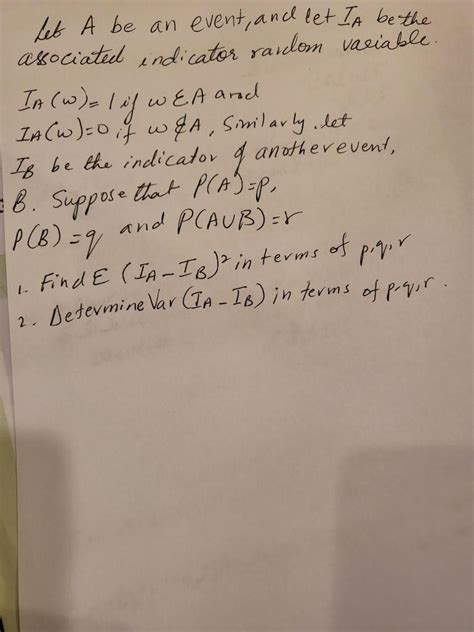 Let A be an event, and let I_A be the
associated indicator random variable.
I_A(w)=1 if w∈A and
I_A(w)=0 if w∉A, Similarly, let
I_B be the indicator of another event,
B. Suppose that P(A)=p,
P(B)=q and P(A∪B)=r
1. Find E (I_A-I_B)² in terms of p,q,r
2. Determine Var (I_A-I_B) in terms of p,q,r.